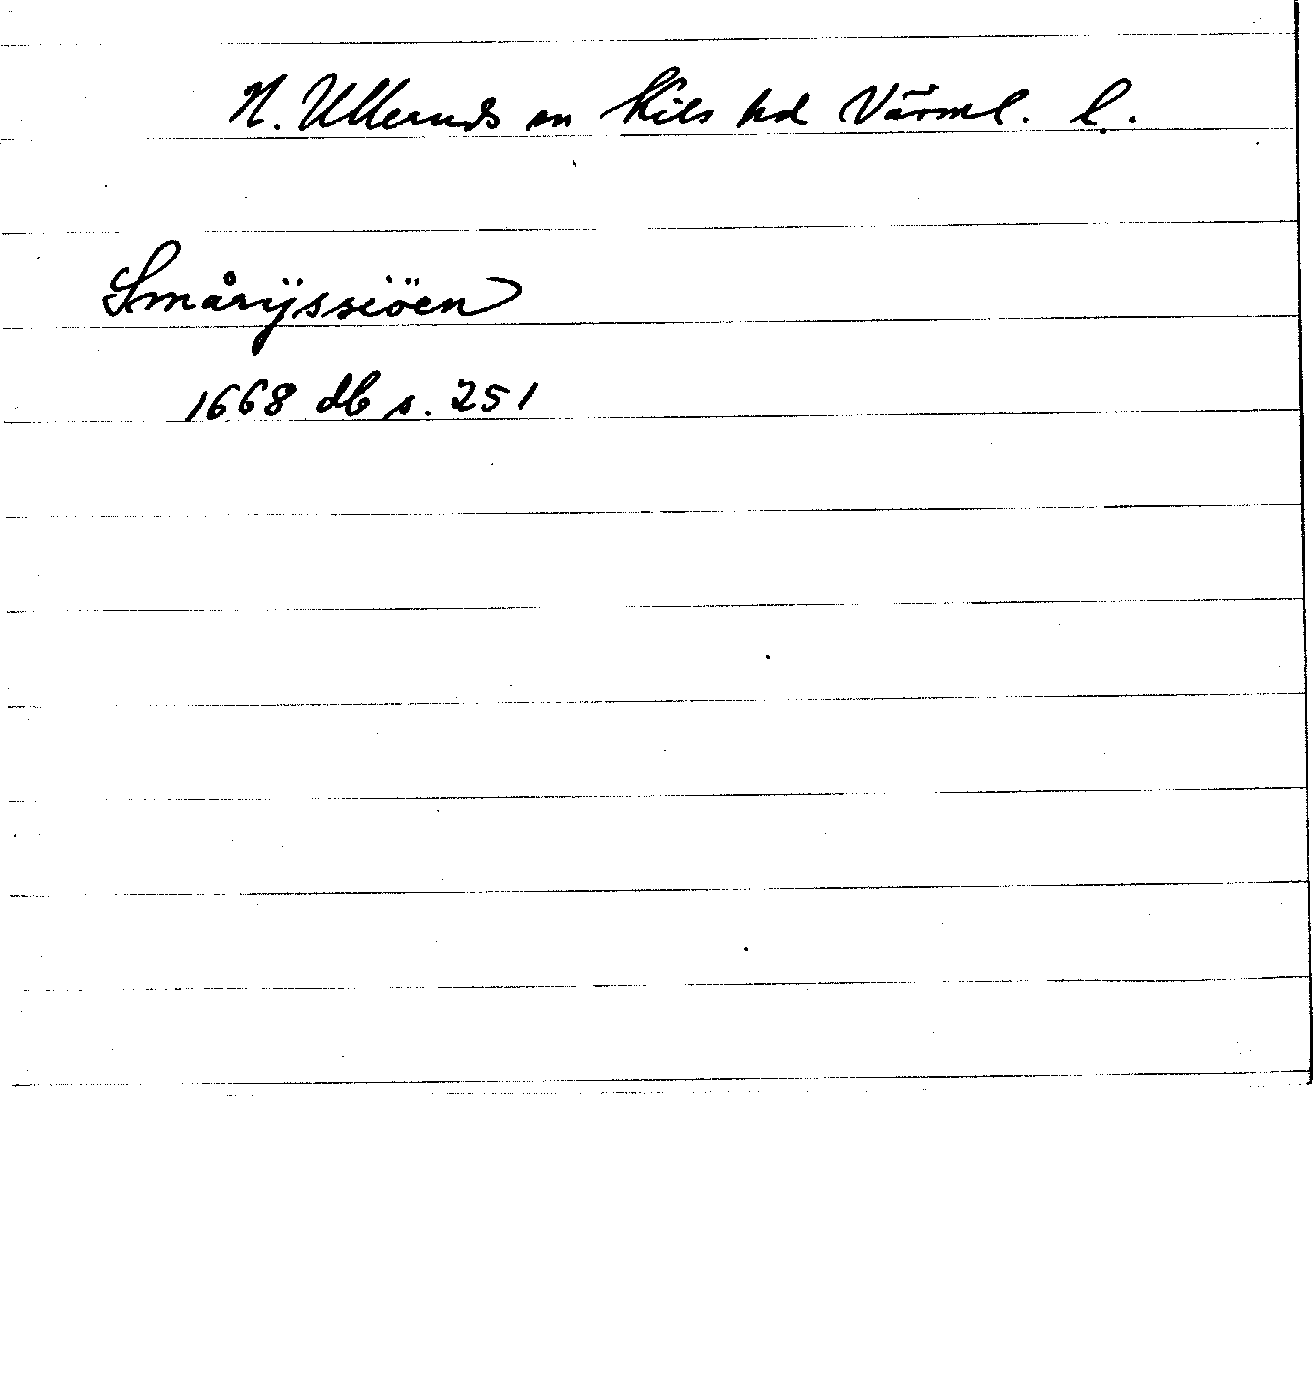 N. Ulleruds sn Kils hd Värml. l.
Smårÿssiöen
1668 db s. 251